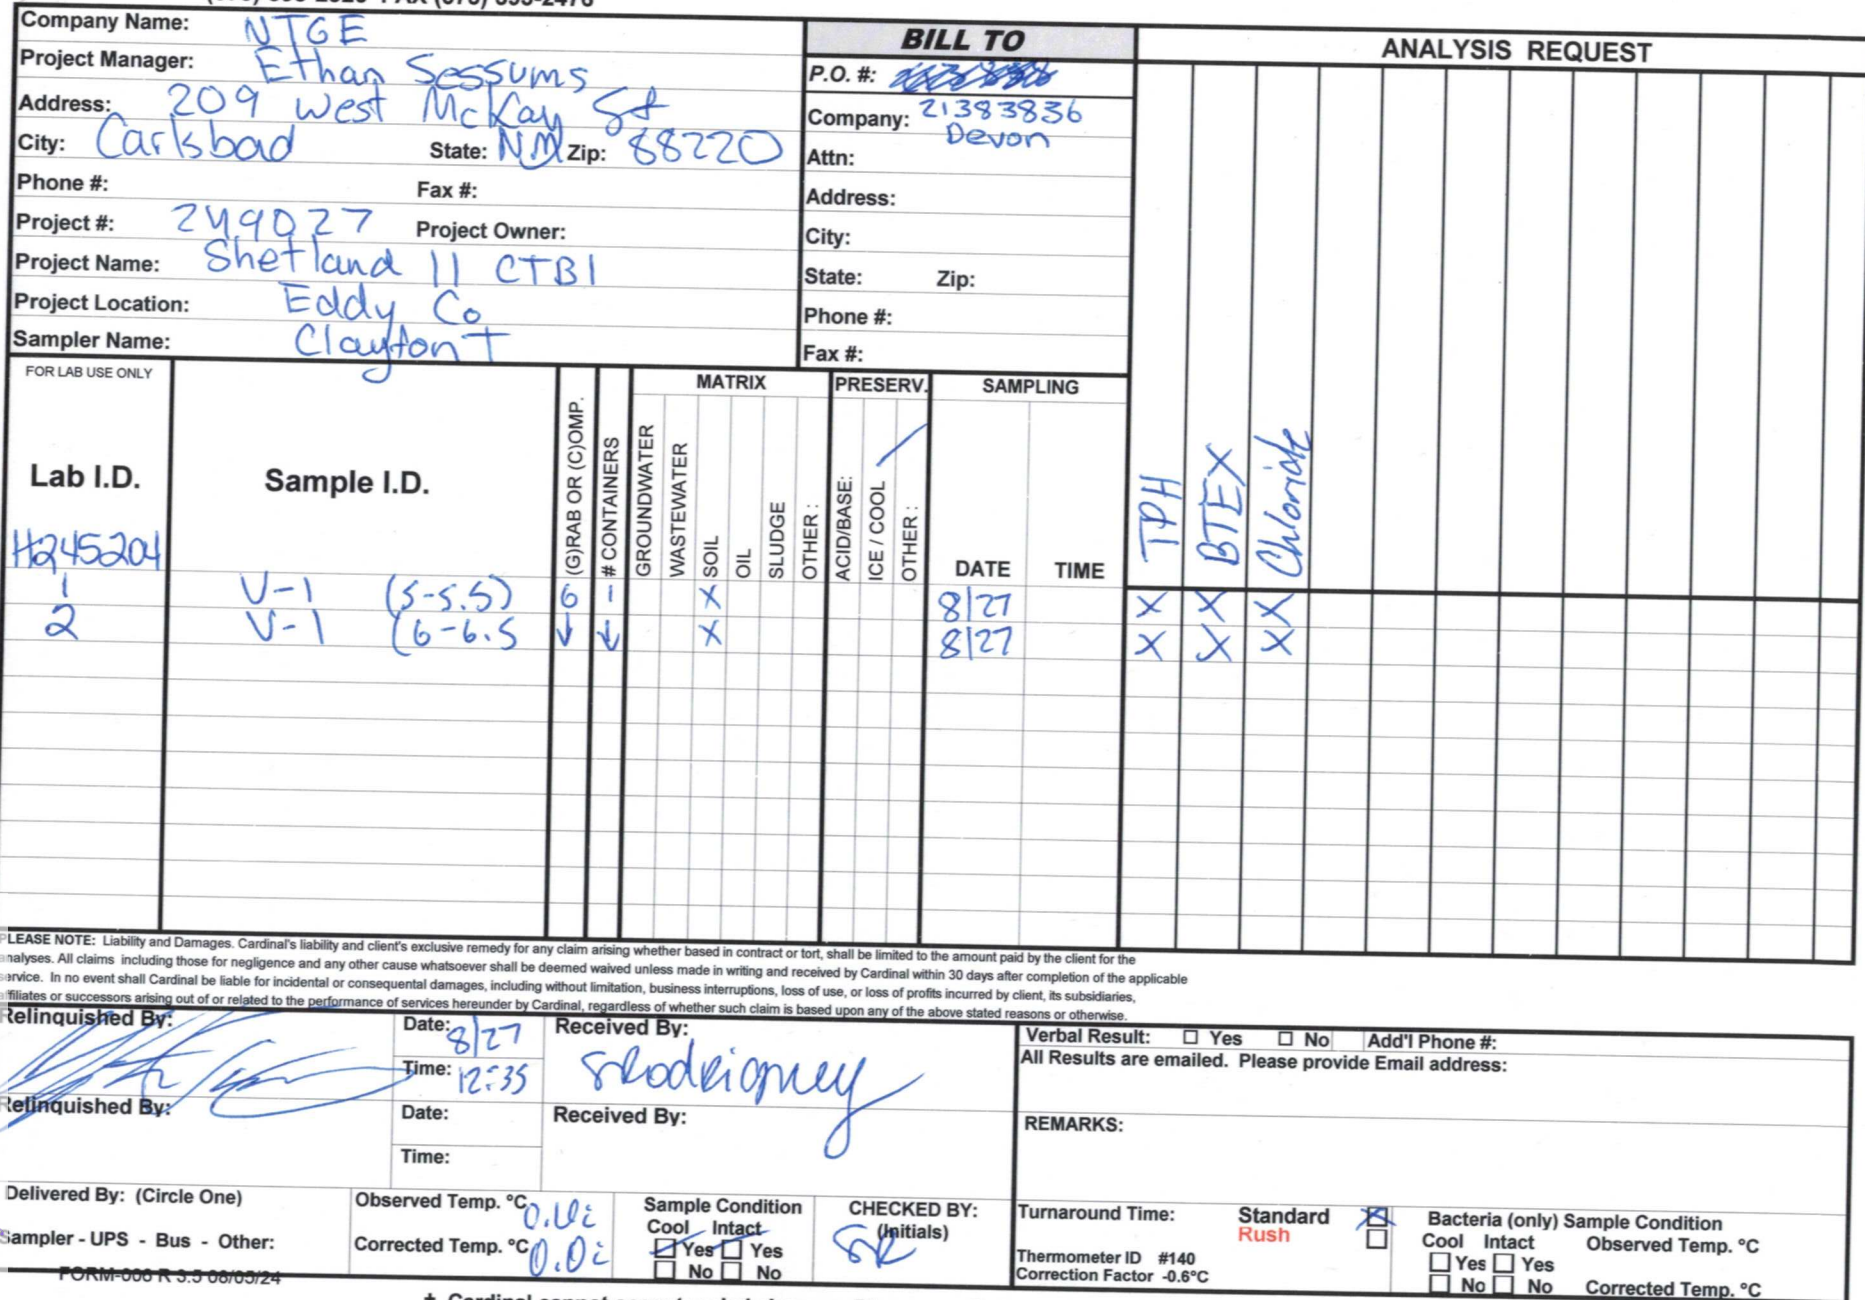 Company Name: NTGE
Project Manager: Ethan Sessums
Address: 209 West McKay St
City: Carlsbad State: NM Zip: 88220
Phone #: Fax #:
Project #: 249027 Project Owner:
Project Name: Shetland 11 CTB1
Project Location: Eddy Co
Sampler Name: Clayton T
BILL TO
P.O. #:
21383836
Company: Devon
Attn:
Address:
City:
State: Zip:
Phone #:
Fax #:
ANALYSIS REQUEST
TPH
BTEX
Chloride
FOR LAB USE ONLY
Lab I.D.
H245204
Sample I.D.
(G)RAB OR (C)OMP.
# CONTAINERS
MATRIX
GROUNDWATER
WASTEWATER
SOIL
OIL
SLUDGE
OTHER :
PRESERV.
ACID/BASE:
ICE / COOL
OTHER :
SAMPLING
DATE TIME
1 V-1 (5-5.5) G 1 X 8/27 X X X
2 V-1 (6-6.5 ↓ ↓ X 8/27 X X X
PLEASE NOTE: Liability and Damages. Cardinal's liability and client's exclusive remedy for any claim arising whether based in contract or tort, shall be limited to the amount paid by the client for the
analyses. All claims including those for negligence and any other cause whatsoever shall be deemed waived unless made in writing and received by Cardinal within 30 days after completion of the applicable
service. In no event shall Cardinal be liable for incidental or consequental damages, including without limitation, business interruptions, loss of use, or loss of profits incurred by client, its subsidiaries,
affiliates or successors arising out of or related to the performance of services hereunder by Cardinal, regardless of whether such claim is based upon any of the above stated reasons or otherwise.
Relinquished By:
Date: 8/27
Time: 12:35
Received By:
SRodriguez
Relinquished By:
Date:
Time:
Received By:
Verbal Result: ☐ Yes ☐ No Add'l Phone #:
All Results are emailed. Please provide Email address:
REMARKS:
Delivered By: (Circle One)
Sampler - UPS - Bus - Other:
Observed Temp. °C
Corrected Temp. °C 0.0i
Sample Condition
Cool Intact
☑ Yes ☑ Yes
☐ No ☐ No
CHECKED BY:
(Initials)
SR
Turnaround Time: Standard ☒
Rush ☐
Thermometer ID #140
Correction Factor -0.6°C
Bacteria (only) Sample Condition
Cool Intact Observed Temp. °C
☐ Yes ☐ Yes
☐ No ☐ No Corrected Temp. °C
FORM-006 R 3.5 08/05/24